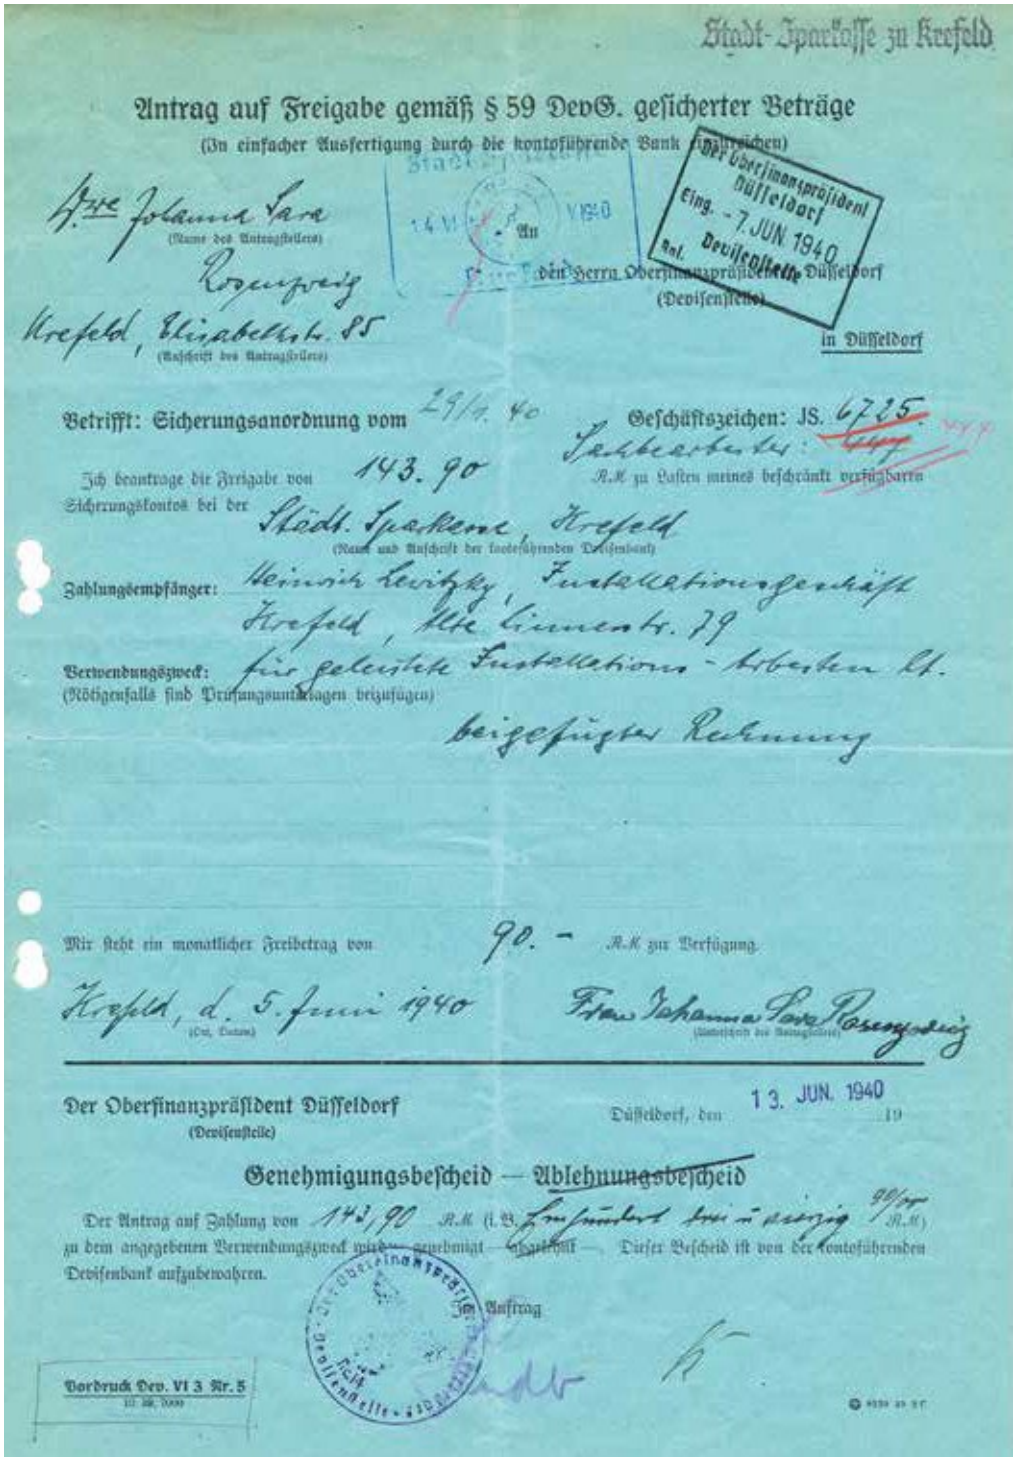 Stadt-Sparkasse zu Krefeld
Antrag auf Freigabe gemäß § 59 DevG. gesicherter Beträge
(In einfacher Ausfertigung durch die kontoführende Bank einzureichen)
Der Oberfinanzpräsident
Düsseldorf
Eing. - 7. JUN. 1940
Anl. Devisenstelle
Wwe Johanna Sara
(Name des Antragstellers)
Rosenzweig
Krefeld, Elisabethstr. 85
(Anschrift des Antragstellers)
14. VI 1940
An
den Herrn Oberfinanzpräsidenten Düsseldorf
(Devisenstelle)
in Düsseldorf
Betrifft: Sicherungsanordnung vom 29/1. 40
Geschäftszeichen: JS. 6725.
Sachbearbeiter: 447
447
Ich beantrage die Freigabe von 143.90 R.M zu Lasten meines beschränkt verfügbaren
Sicherungskontos bei der Städt. Sparkasse, Krefeld
(Name und Anschrift der kontoführenden Devisenbank)
Zahlungsempfänger: Heinrich Lewitzky, Installationsgeschäft
Krefeld, Alte Linnerstr. 79
Verwendungszweck: für geleistete Installations-Arbeiten lt.
(Nötigenfalls sind Prüfungsunterlagen beizufügen)
beigefügter Rechnung
Mir steht ein monatlicher Freibetrag von 90.- R.M zur Verfügung.
Krefeld, d. 5. Juni 1940
(Ort, Datum)
Frau Johanna Sara Rosenzweig
(Unterschrift des Antragstellers)
Der Oberfinanzpräsident Düsseldorf
(Devisenstelle)
Düsseldorf, den 13. JUN. 1940 19
Genehmigungsbescheid — Ablehnungsbescheid
Der Antrag auf Zahlung von 143,90 R.M (i. B. Einhundert drei u vierzig 90/100 R.M)
zu dem angegebenen Verwendungszweck wird genehmigt — abgelehnt —. Dieser Bescheid ist von der kontoführenden
Devisenbank aufzubewahren.
Im Auftrag
Der Oberfinanzpräsident Düsseldorf
Devisenstelle
Vordruck Dev. VI 3 Nr. 5